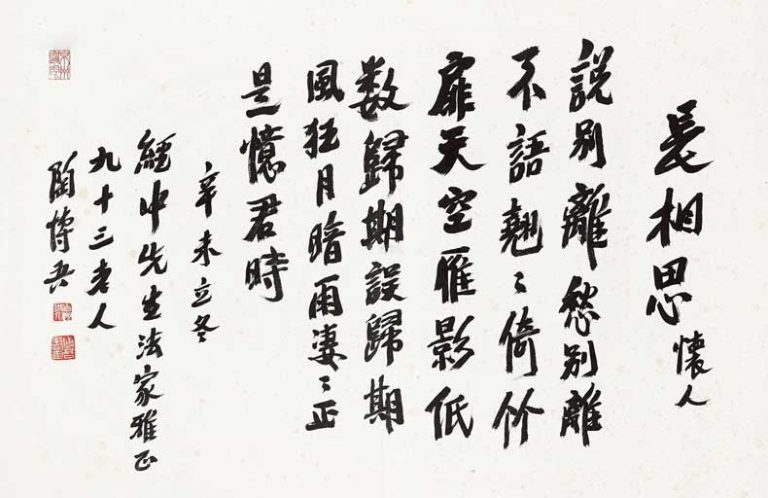 長相思 懷人
說別離愁別離
不語翹〻倚竹
扉天空雁影低
数歸期誤歸期
風狂月暗雨凄〻正
是憶君時
辛未立冬
經中先生法家雅正
九十三老人
陶博吾